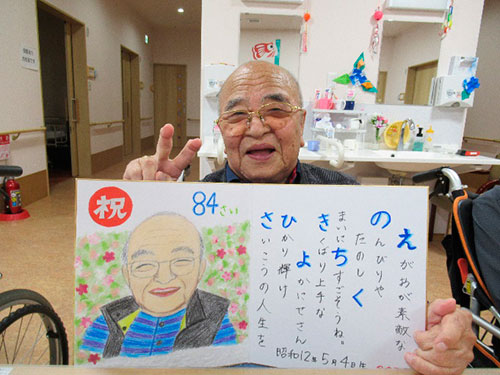 祝
84さい
えがおが素敵な
のんびりや
たのしく
まいにちすごそうね。
きくばり上手な
よかにせさん
ひかり輝け
さいこうの人生を
昭和12年5月4日生